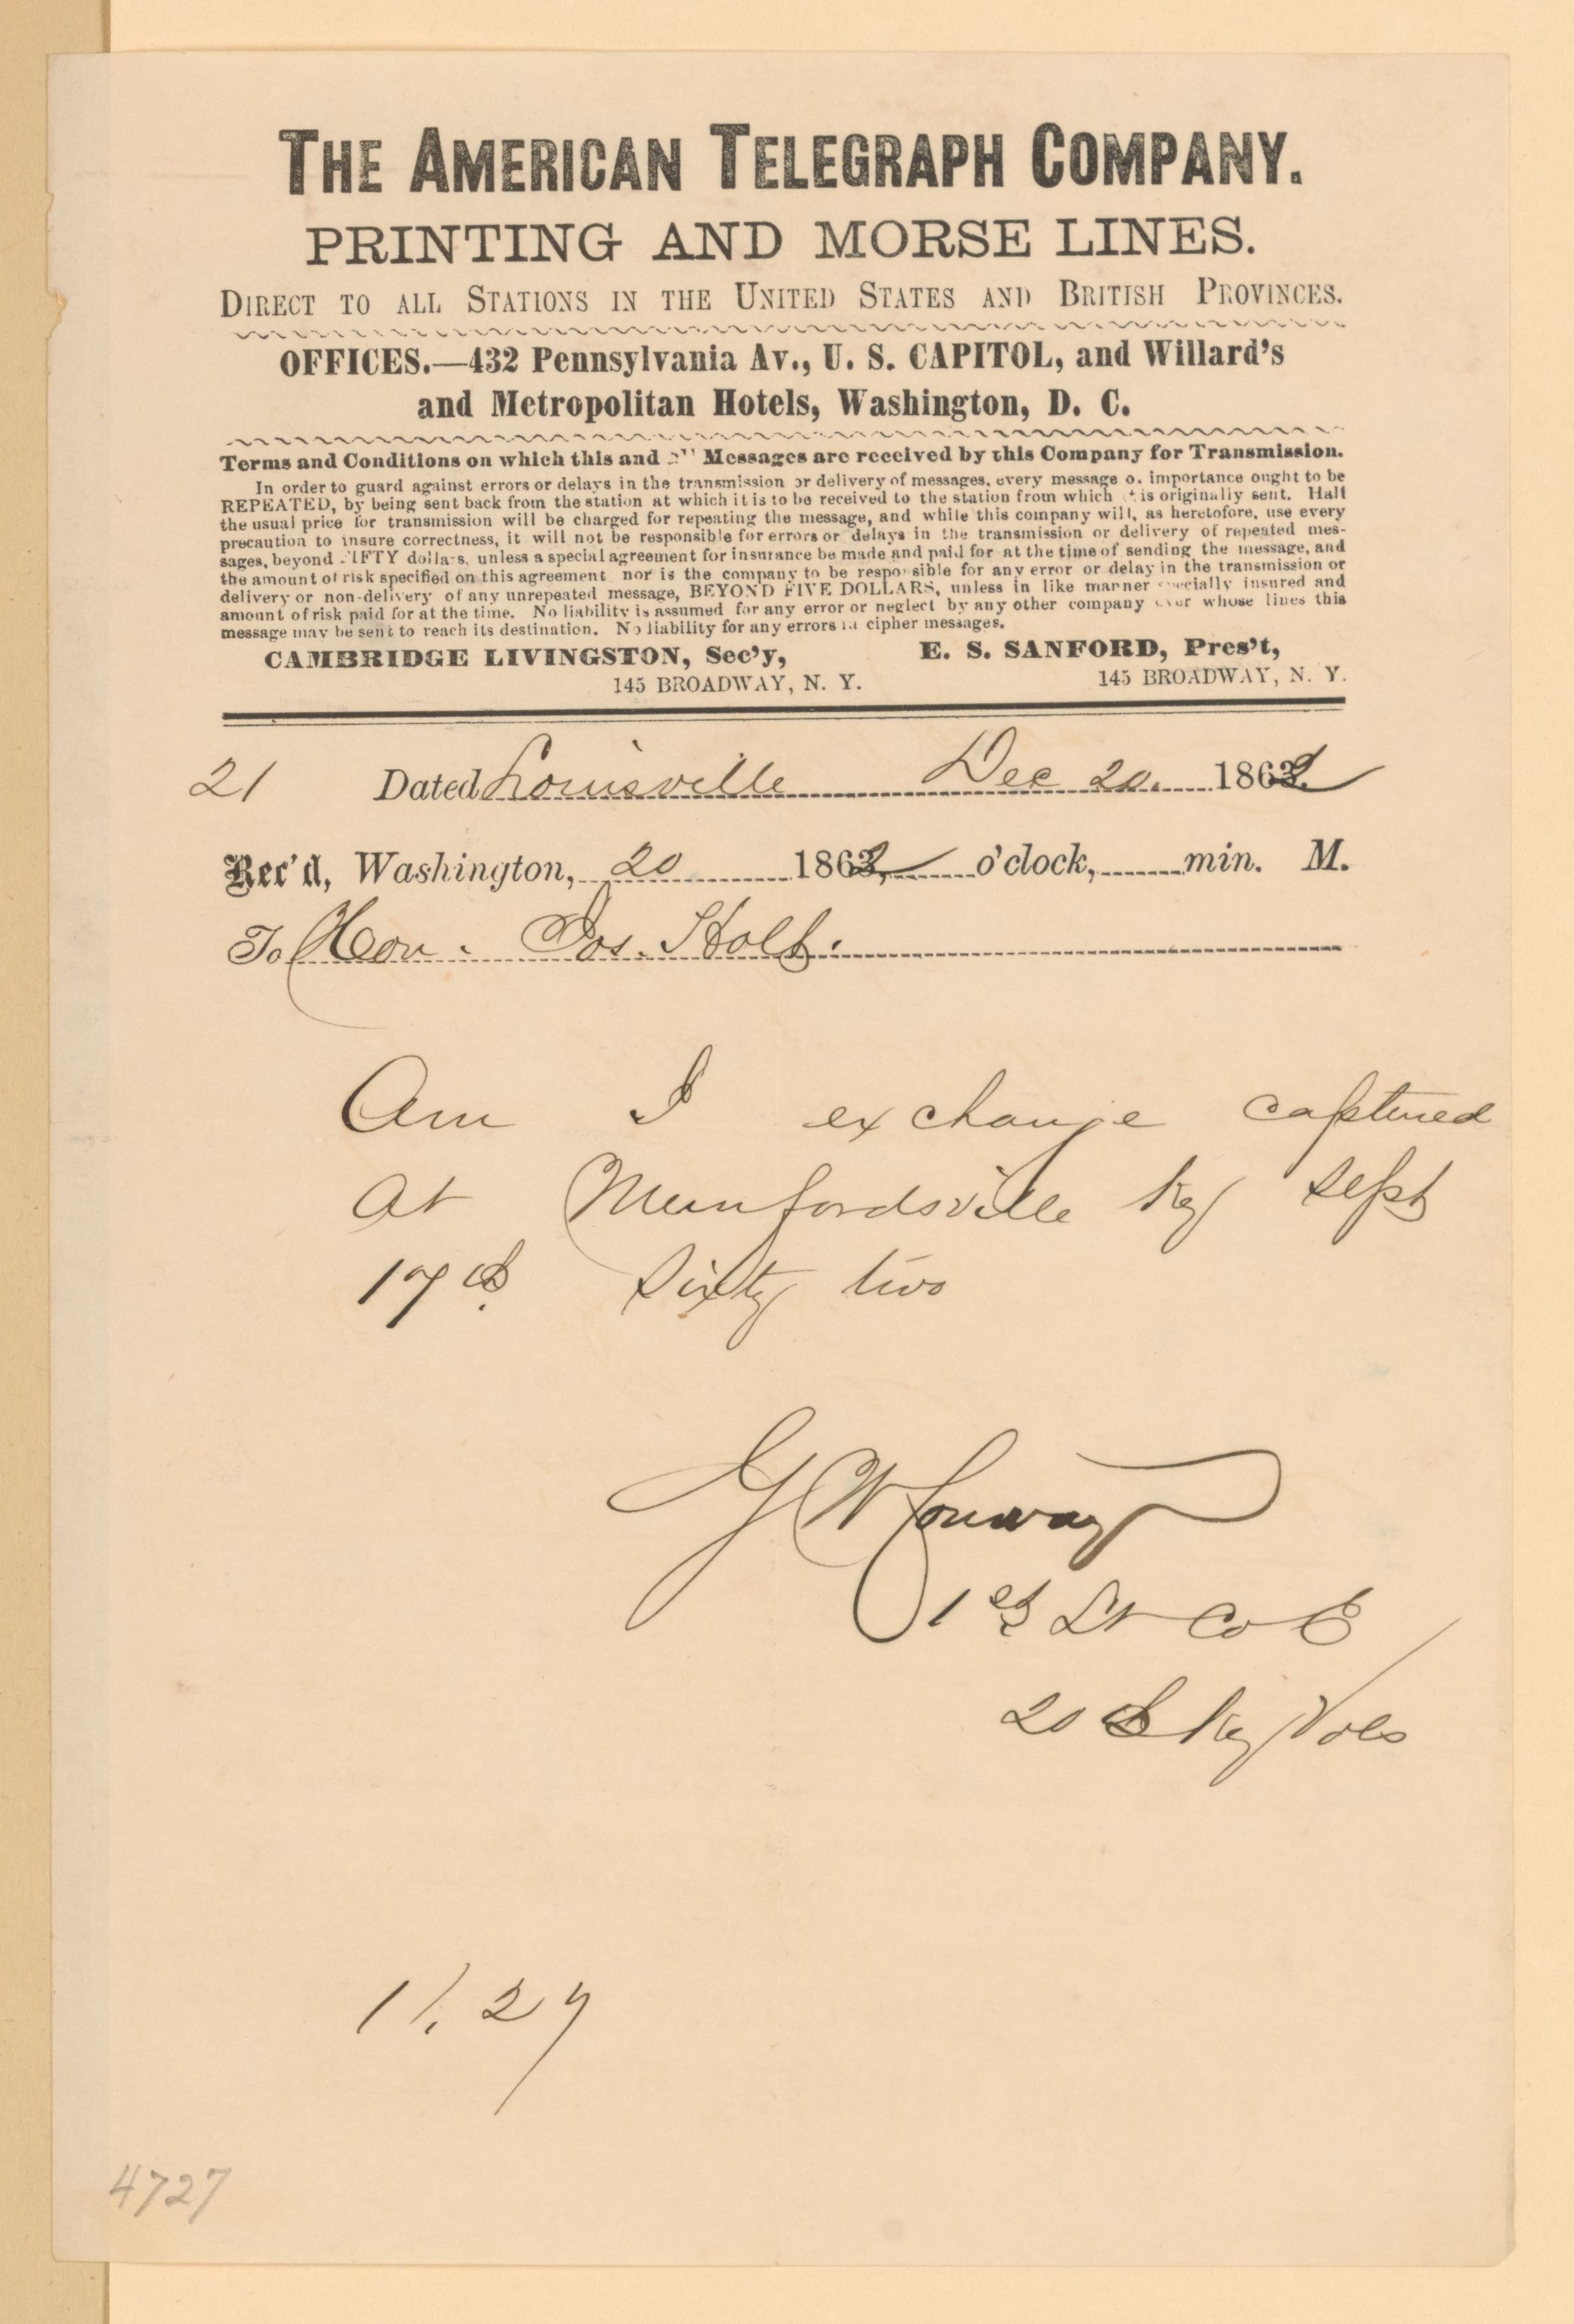 THE AMERICAN TELEGRAPH COMPANY.
PRINTING AND MORSE LINES.
DIRECT TO ALL STATIONS IN THE UNITED STATES AND BRITISH PROVINCES.
OFFICES.—432 Pennsylvania Av., U. S. CAPITOL, and Willard's
and Metropolitan Hotels, Washington, D. C.
Terms and Conditions on which this and Messages are received by this Company for Transmission.
In order to guard against errors or delays in the transmission or delivery of messages, every message o. importance ought to be
REPEATED, by being sent back from the station at which it is to be received to the station from which it is originally sent. Half
the usual price for transmission will be charged for repeating the message, and while this company will, as heretofore, use every
precaution to insure correctness, it will not be responsible for errors or delays in the transmission or delivery of repeated mes-
sages, beyond FIFTY dollars, unless a special agreement for insurance be made and paid for at the time of sending the message, and
the amount of risk specified on this agreement nor is the company to be responsible for any error or delay in the transmission or
delivery or non-delivery of any unrepeated message, BEYOND FIVE DOLLARS, unless in like manner specially insured and
amount of risk paid for at the time. No liability is assumed for any error or neglect by any other company over whose lines this
message may be sent to reach its destination. No liability for any errors in cipher messages.
CAMBRIDGE LIVINGSTON, Sec'y, E. S. SANFORD, Pres't,
145 BROADWAY, N. Y. 145 BROADWAY, N. Y.
21 Dated Louisville Dec 20. 1862
Rec'd, Washington, 20 1862, o'clock, min. M.
To Hon. Jos. Holt.
Am I exchange captured
at Munfordsville Ky Sept
17th Sixty two
G W Conway
1st Lt Co E
20th Ky Vols
11.27
4727